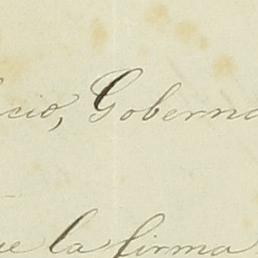 cio, Goberna
ue la firma